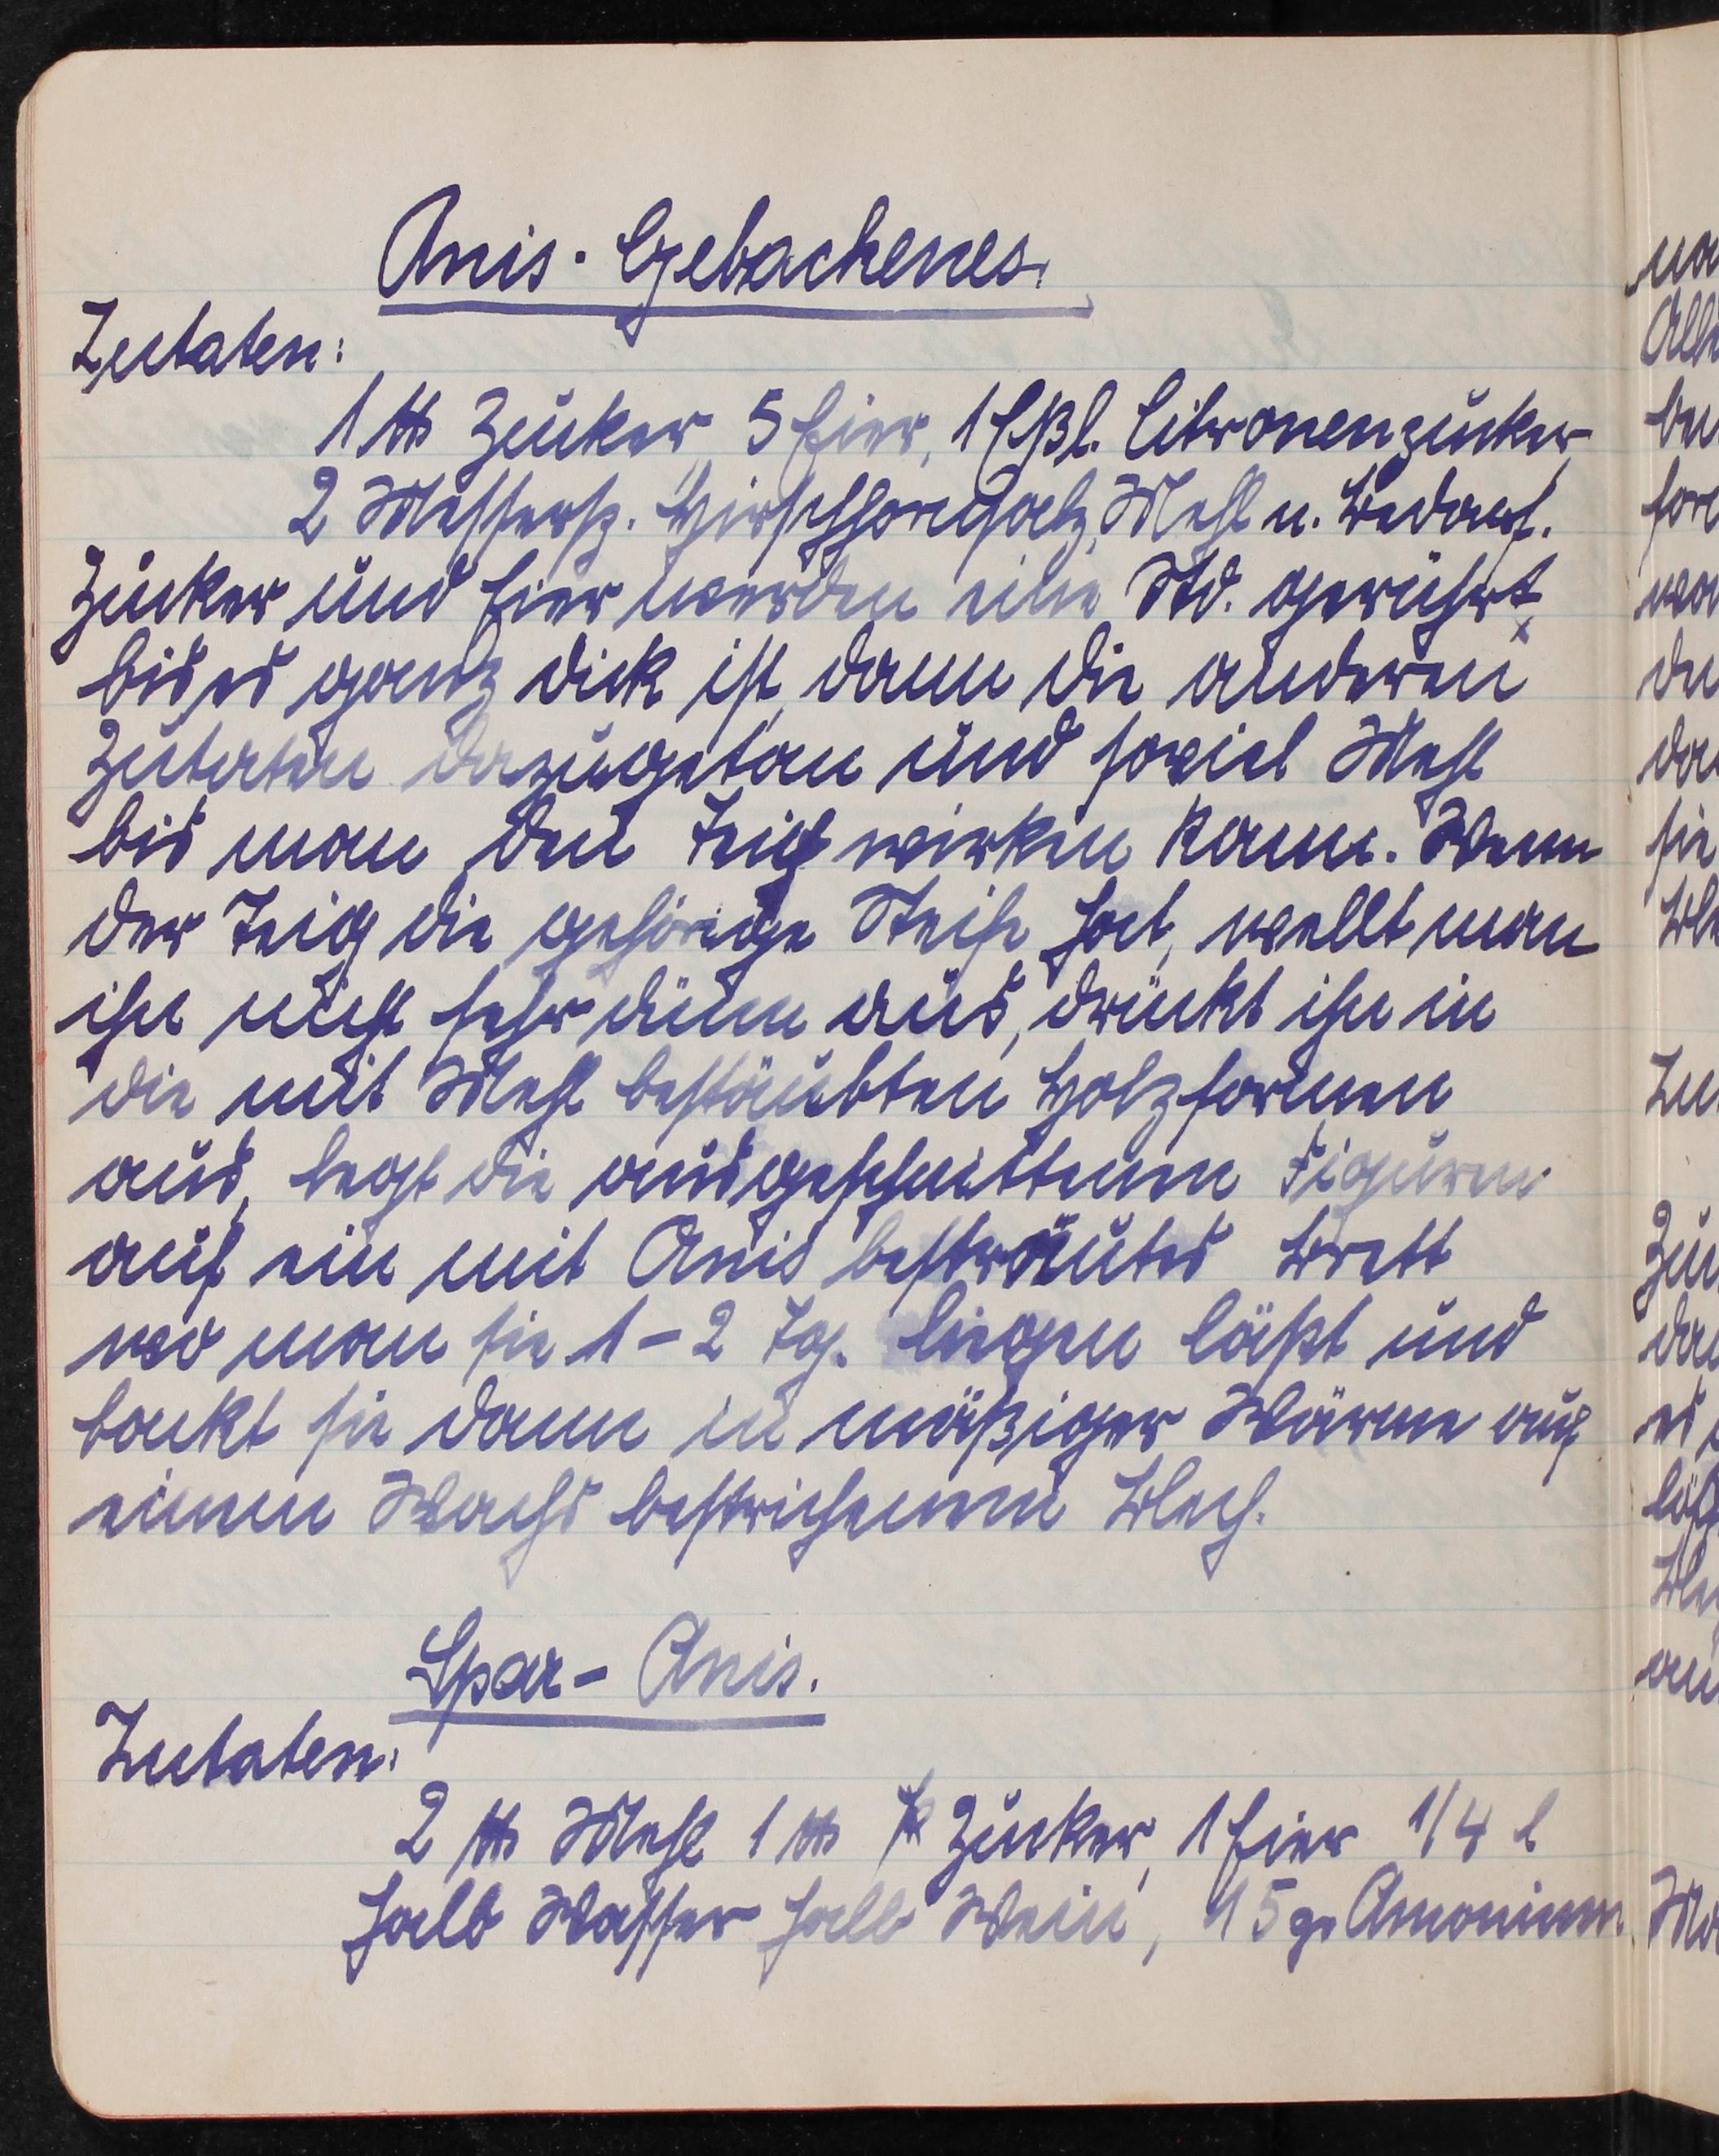 Anis-Gebackenes.
Zutaten:
1 ℔ Zucker 5 Eier, 1 Eßl. Citronenzucker
2 Messersp. Hirschhornsalz, Mehl n. Bedarf.
Zucker und Eier werden eine Std. gerührt,
bis es ganz dick ist, dann die anderen
Zutaten dazugetan und soviel Mehl
bis man den Teig wirken kann. Wenn
der Teig die gehörige Steife hat, wellt man
ihn nicht sehr dünn aus, drückt ihn in
die mit Mehl bestäubten Holzformen
aus, legt die ausgeschnittenen Figuren
auf ein mit Anis bestreutes Brett
wo man sie 1-2 Tg. liegen läßt und
backt sie dann in mäßiger Wärme auf
einem Wachs bestrichenem Blech.
Spar-Anis.
Zutaten:
2 ℔ Mehl 1 ℔ Zucker, 1 Eier 1/4 l
halb Wasser halb Wein, 15 gr Amonium